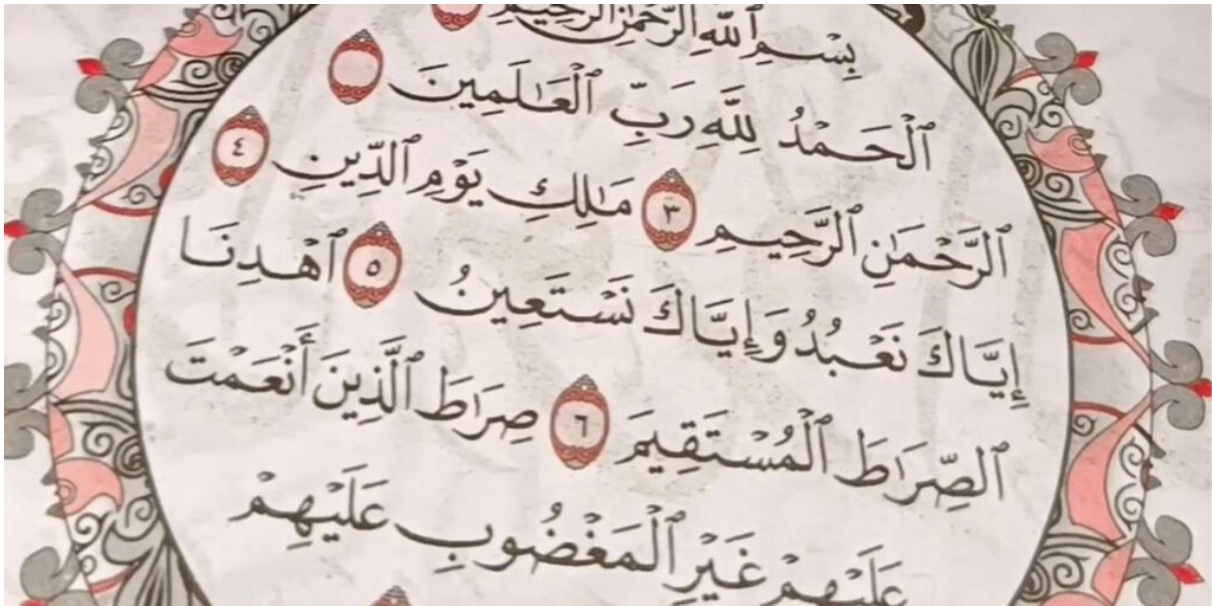 بِسْمِ ٱللَّهِ ٱلرَّحْمَٰنِ ٱلرَّحِيمِ
ٱلْحَمْدُ لِلَّهِ رَبِّ ٱلْعَٰلَمِينَ
ٱلرَّحْمَٰنِ ٱلرَّحِيمِ ٣ مَٰلِكِ يَوْمِ ٱلدِّينِ ٤
إِيَّاكَ نَعْبُدُ وَإِيَّاكَ نَسْتَعِينُ ٥ ٱهْدِنَا
ٱلصِّرَٰطَ ٱلْمُسْتَقِيمَ ٦ صِرَٰطَ ٱلَّذِينَ أَنْعَمْتَ
عَلَيْهِمْ غَيْرِ ٱلْمَغْضُوبِ عَلَيْهِمْ